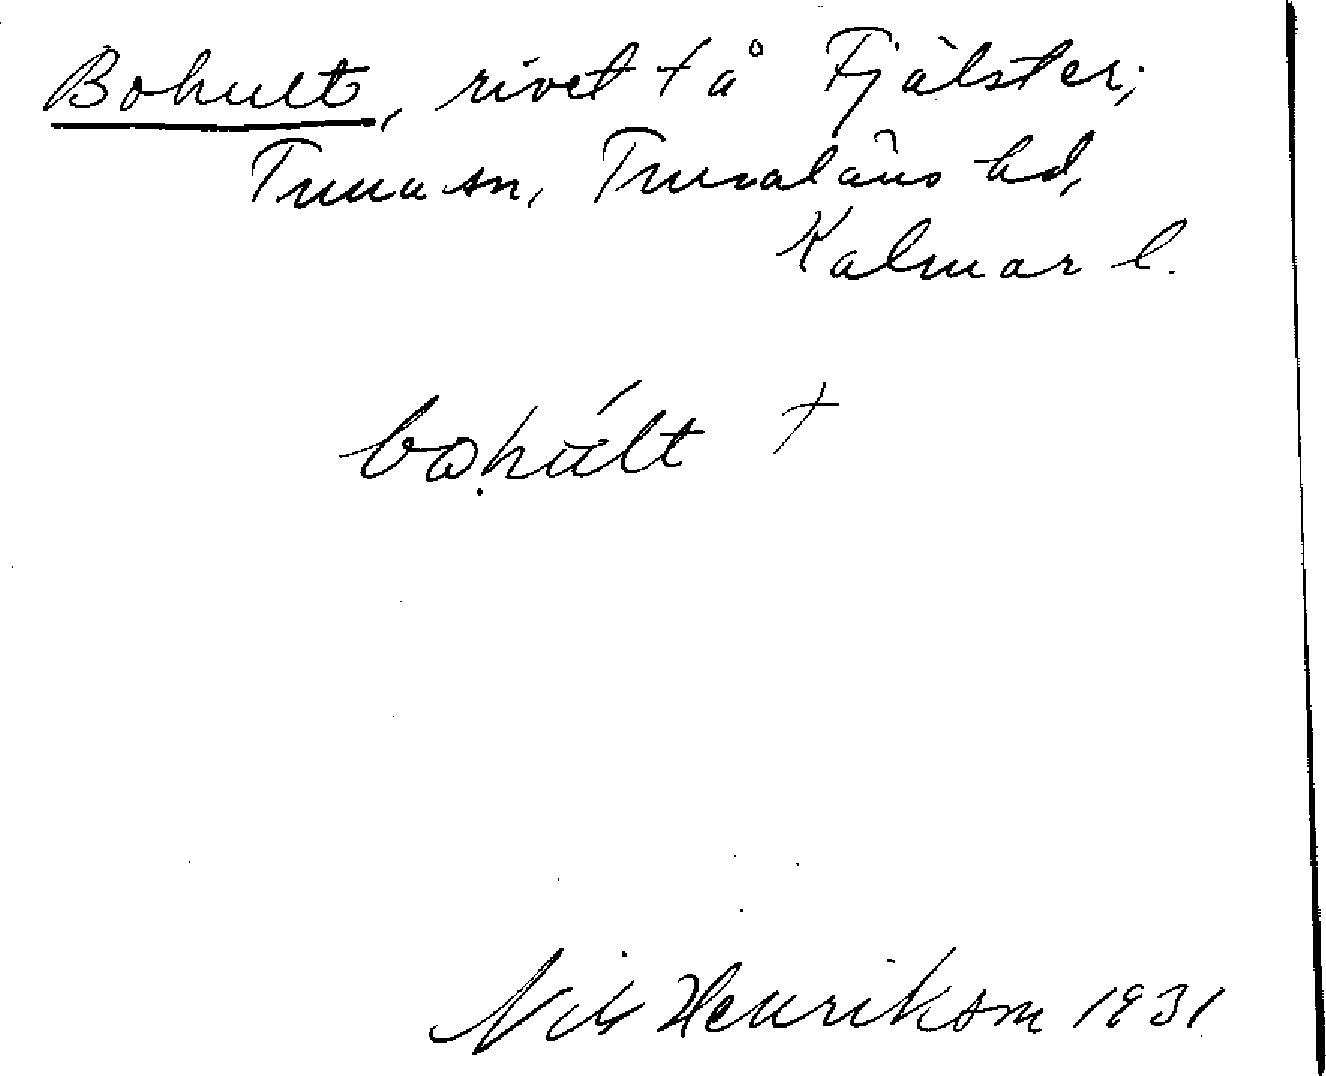 Bohult, rivet t å Fjälster;
Tuna sn, Tunaläns hd,
Kalmar l.
bohúlt +
Nils Henrikson 1931